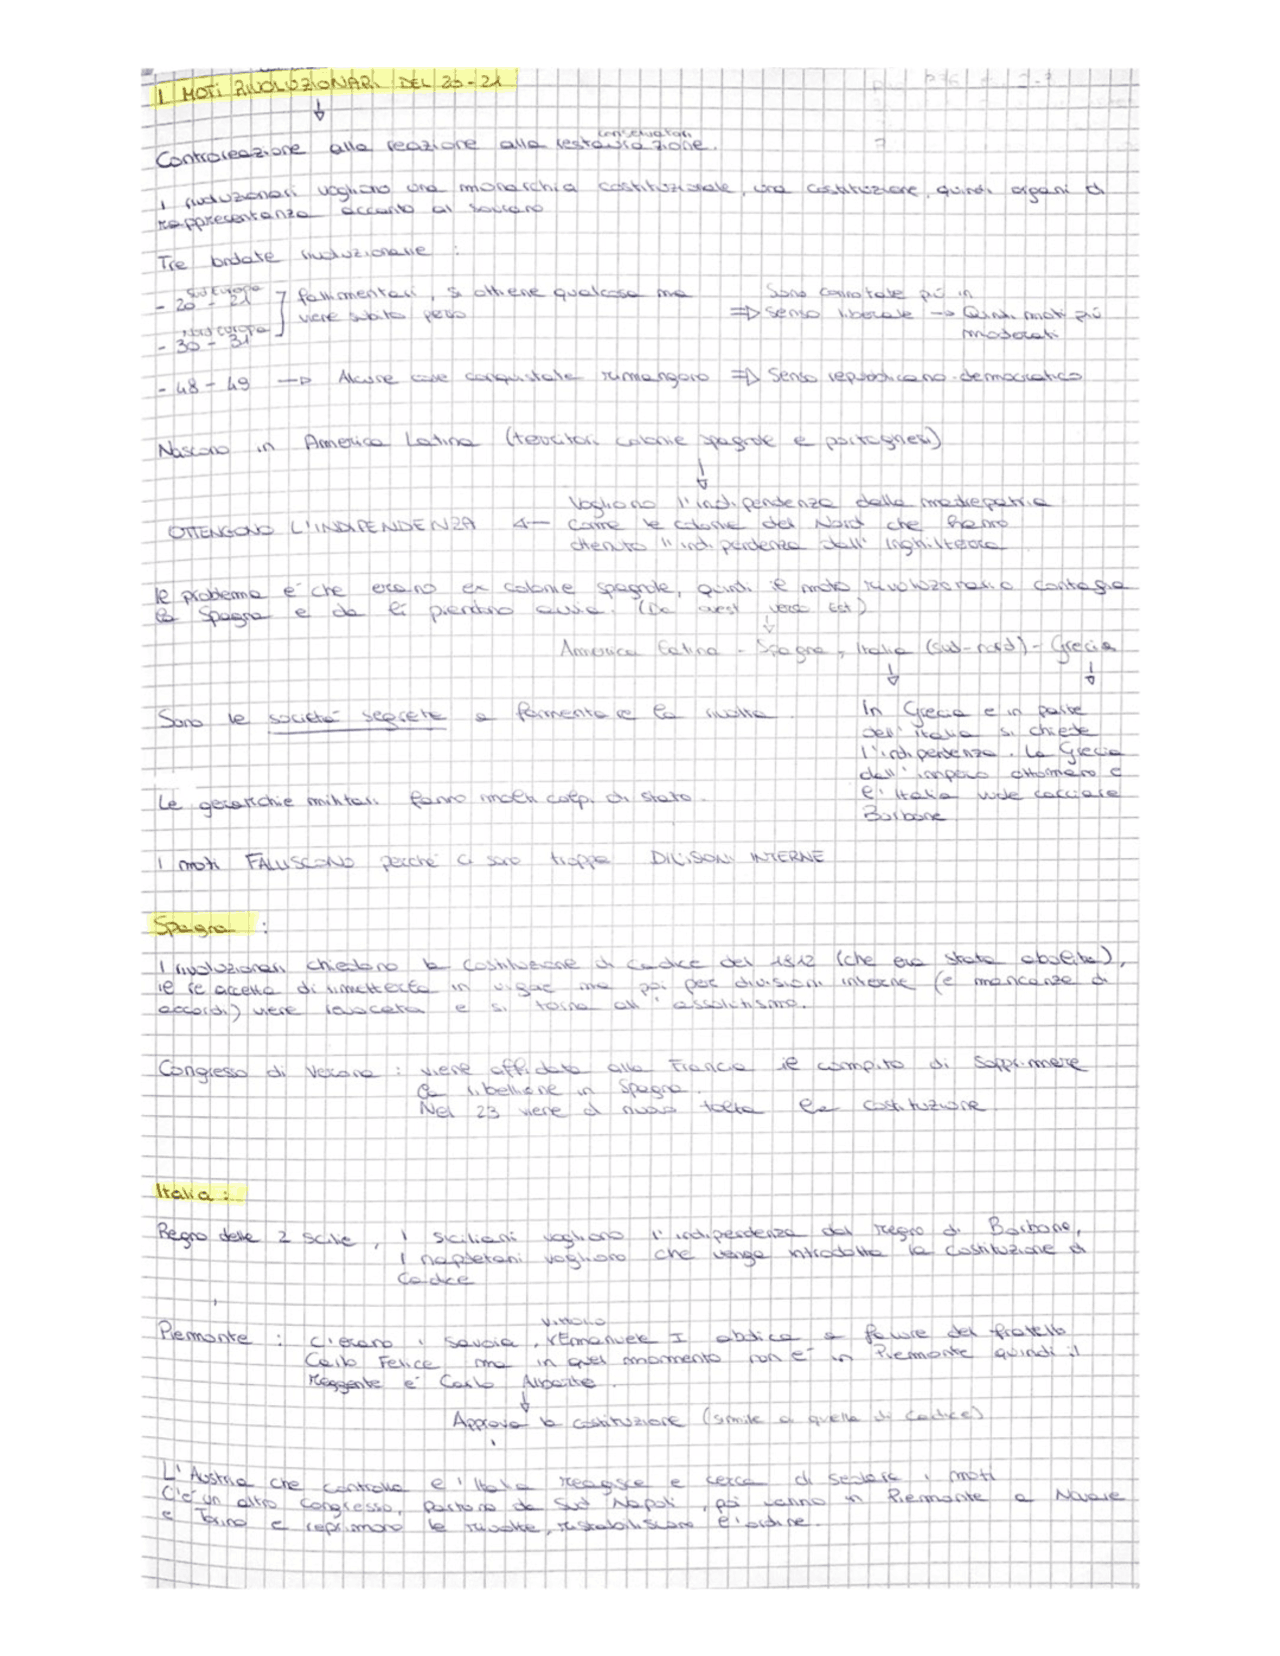 I MOTI RIVOLUZIONARI DEL 20-21
↓
conservatori
Controreazione alla reazione alla restaurazione.
I rivoluzionari vogliono una monarchia costituzionale, una costituzione, quindi organi di
rappresentanza accanto al sovrano
Tre ondate rivoluzionarie :
Sud Europa
- 20 - 21 fallimentari, si ottiene qualcosa ma
viene subito perso
Nord Europa
- 30 - 31
Sono connotate più in
⇒ senso liberale → Quindi moti più
moderati
- 48 - 49 → Alcune cose conquistate rimangono ⇒ Senso repubblicano-democratico
Nascono in America Latina (territori colonie spagnole e portoghesi)
↓
Vogliono l'indipendenza dalla madrepatria
OTTENGONO L'INDIPENDENZA ← come le colonie del Nord che hanno
ottenuto l'indipendenza dall'Inghilterra
Il problema è che erano ex colonie spagnole, quindi il moto rivoluzionario contagia
la Spagna e da lì prendono avvio. (Da ovest verso est)
↓
America Latina - Spagna, Italia (sud-nord) - Grecia
↓ ↓
Sono le società segrete a fermentare la rivolta.
In Grecia e in parte
dell'Italia si chiede
l'indipendenza. La Grecia
dall'impero ottomano e
l'Italia vuole cacciare
Borbone
Le gerarchie militari fanno molti colpi di stato.
I moti FALLISCONO perché ci sono troppe DIVISONI INTERNE
Spagna :
I rivoluzionari chiedono la costituzione di Cadice del 1812 (che era stata abolita),
il re accetta di rimetterla in vigore ma poi per divisioni interne (e mancanza di
accordi) viene revocata e si torna all'assolutismo.
Congresso di Verona : viene affidato alla Francia il compito di sopprimere
la ribellione in Spagna.
Nel 23 viene di nuovo tolta la costituzione
Italia :
Regno delle 2 Sicilie, I siciliani vogliono l'indipendenza dal regno di Borbone,
I napoletani vogliono che venga introdotta la costituzione di
Cadice
Vittorio
Piemonte : C'erano i Savoia, Emanuele I abdica a favore del fratello
Carlo Felice ma in quel momento non è in Piemonte quindi il
reggente è Carlo Alberto.
↓
Approva la costituzione (simile a quella di Cadice)
L'Austria che controlla l'Italia reagisce e cerca di sedare i moti
C'è un altro congresso, partono da Sud Napoli, poi vanno in Piemonte a Novara
e Torino e reprimono le rivolte, ristabiliscono l'ordine.